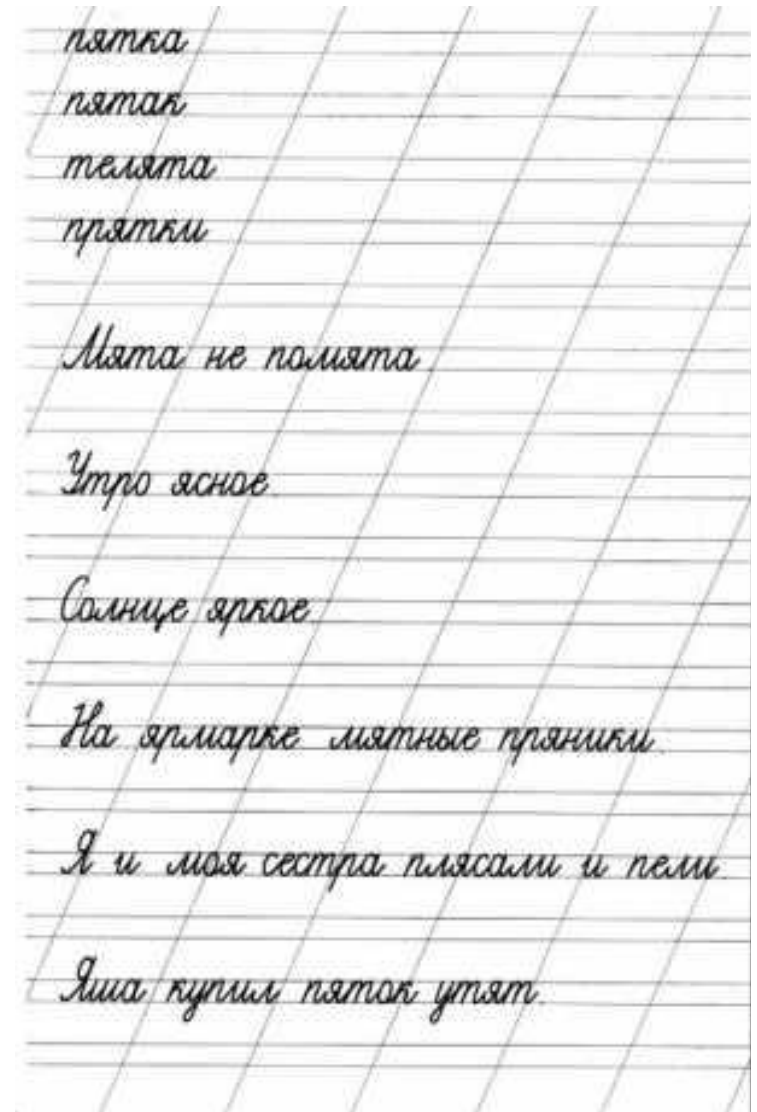 пятка
пятак
телята
прятки
Мята не помята.
Утро ясное.
Солнце яркое.
На ярмарке мятные пряники.
Я и моя сестра плясали и пели.
Яша купил пяток утят.